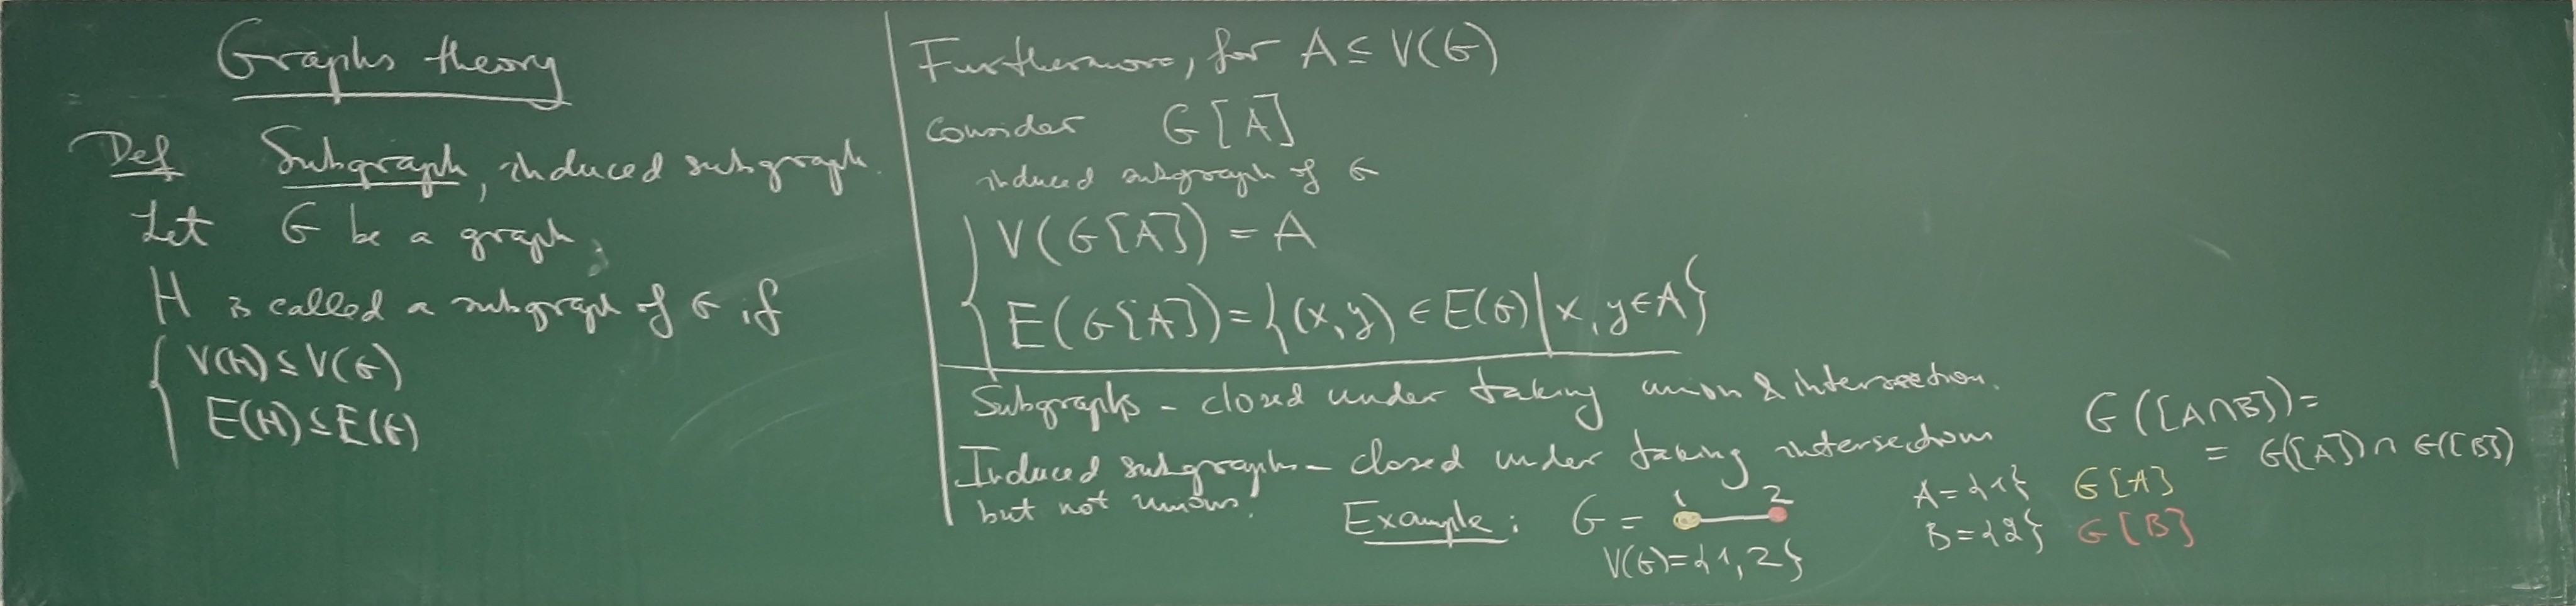 Graphs theory
Def Subgraph, induced subgraph.
Let G be a graph,
H is called a subgraph of G if
V(H) ⊆ V(G)
E(H) ⊆ E(G)
Furthermore, for A ⊆ V(G)
Consider G[A]
induced subgraph of G
V(G[A]) = A
E(G[A]) = {(x,y) ∈ E(G) | x, y ∈ A}
Subgraphs - closed under taking union & intersection.
Induced subgraphs - closed under taking intersections
but not unions!
G([A∩B]) =
= G([A]) ∩ G([B])
Example: G = 1 2
V(G) = {1, 2}
A = {1} G[A]
B = {2} G[B]